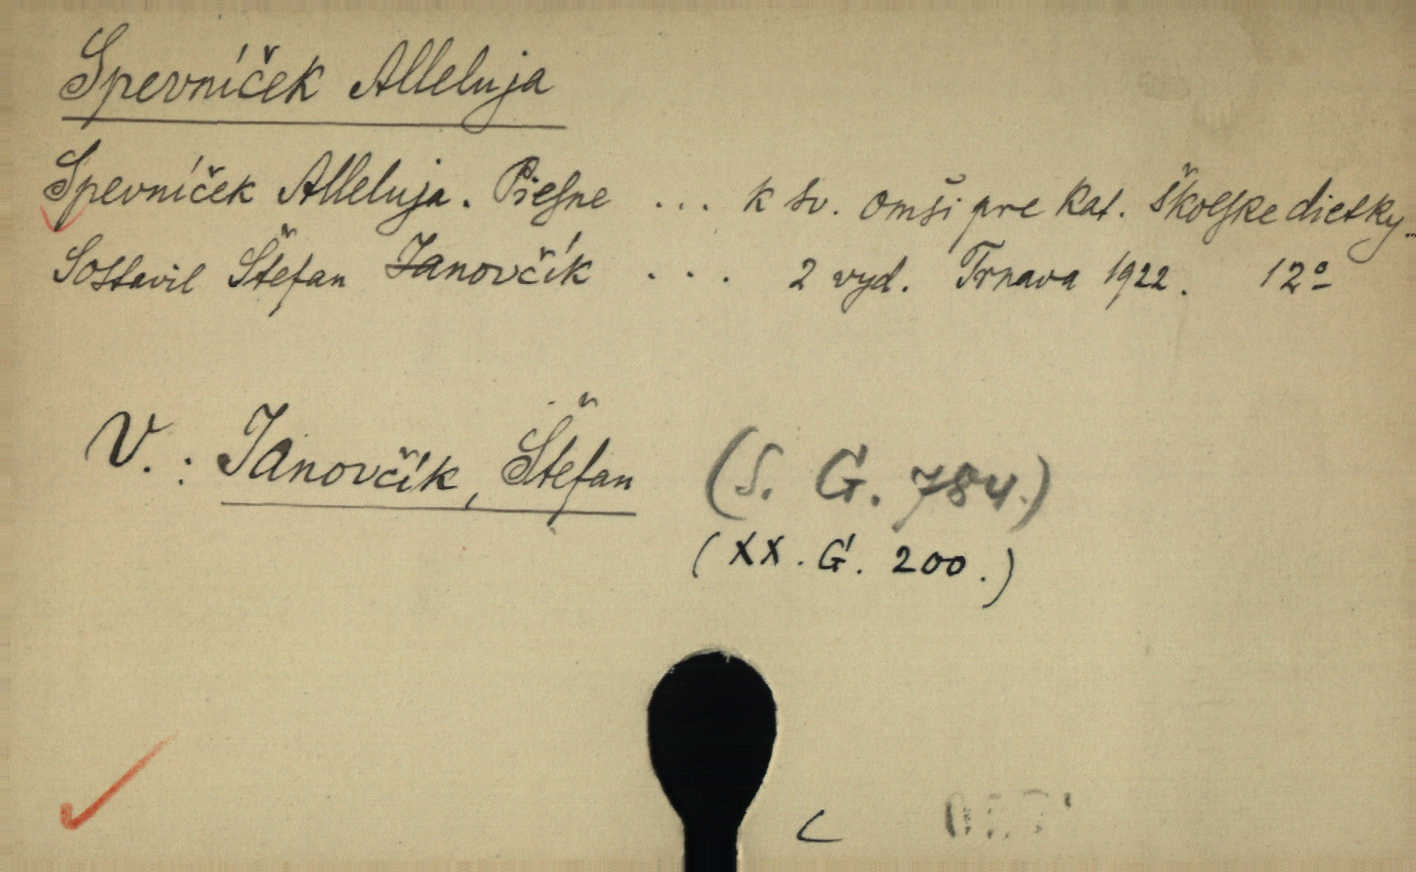 Spevníček Alleluja
Spevníček Alleluja. Piesne ... k sv. omši pre kat. školske dietky..
Sostavil Štefan Janovčík ... 2 vyd. Trnava 1922. 12º
V.: Janovčík, Štefan (S. G. 784.)
(XX. G. 200.)